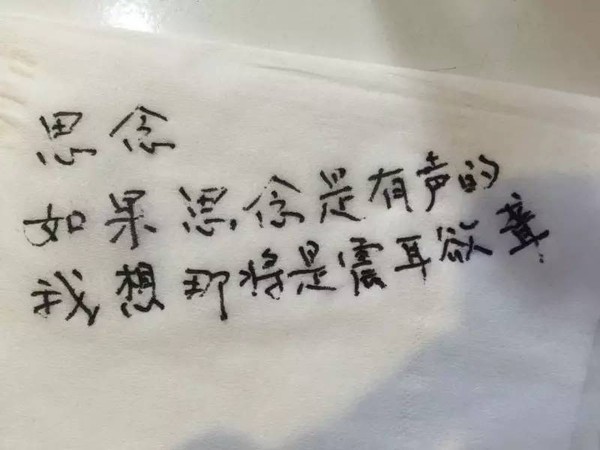 思念
如果思念是有声的
我想那将是震耳欲聋